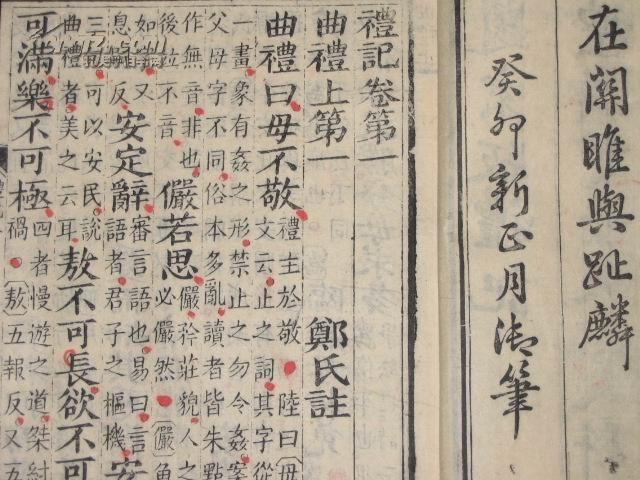 在關雎與趾麟
癸卯新正月御筆
禮記卷第一
曲禮上第一 鄭氏註
曲禮曰毋不敬 禮主於敬 陸曰毋
文云止之詞其字從
一畫象有姦之形禁止之勿令姦
父母字不同俗本多亂讀者皆朱點
作無音非也
後竝不音 儼若思 儼矜莊貌人之
必儼然 儼 魚
又
息嗣反 安定辭 審言語也易曰言
語者君子之樞機 安
三 可以安民說
曲禮者美之云耳 敖不可長欲不可
可滿樂不可極 四者慢遊之道桀紂
禍 敖 五報反又五